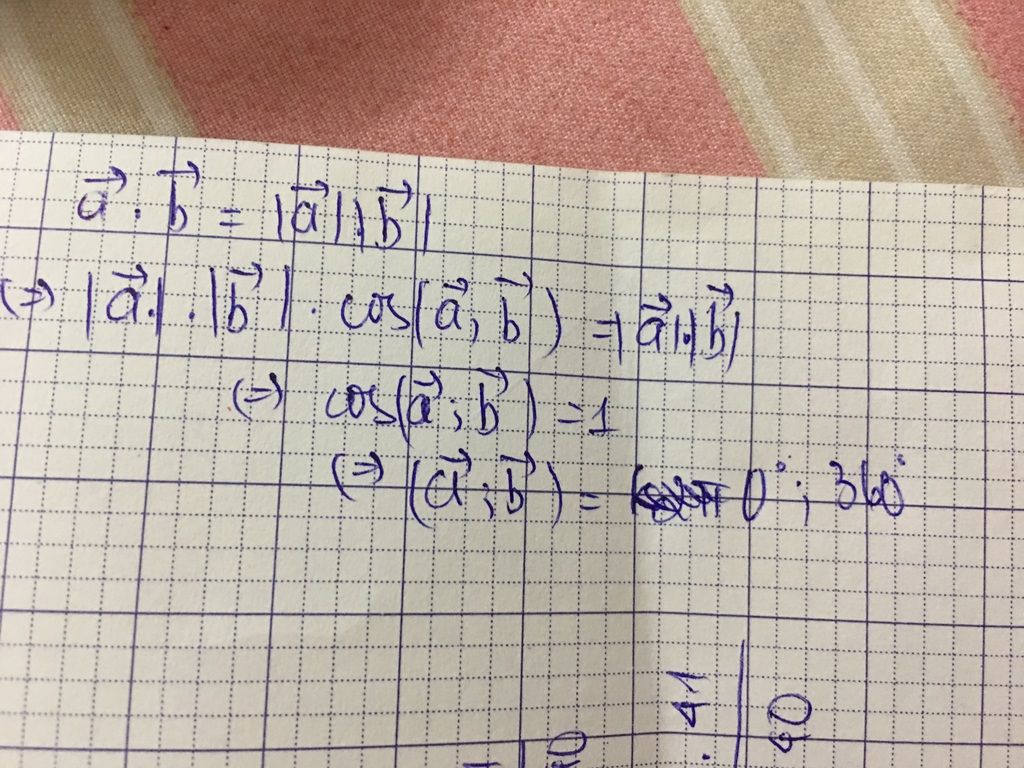 a⃗ . b⃗ = |a⃗|.|b⃗|
(=) |a⃗.| . |b⃗| . cos(a⃗; b⃗) = |a⃗|.|b⃗|
(=) cos(a⃗; b⃗) = 1
(=) (a⃗; b⃗) = 0°; 360°
. 41
40